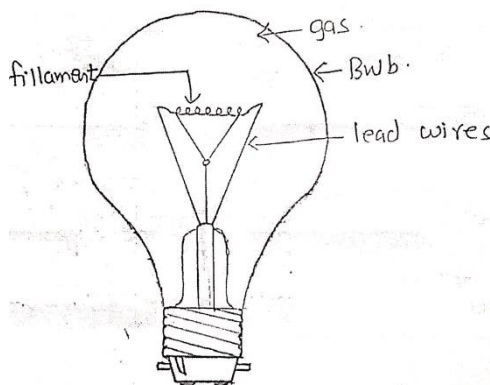 gas.
fillament
Bulb.
lead wires